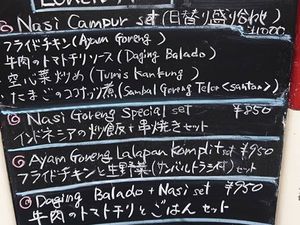 Nasi Campur set (日替り盛り合わせ)
¥1000
フライドチキン (Ayam Goreng)
牛肉のトマトチリソース (Daging Balado)
空心菜炒め (Tumis Kankung)
たまごのココナッツ煮 (Sambal Goreng Telor <santan>)
Nasi Goreng Special set ¥850
インドネシアの炒飯+串焼きセット
Ayam Goreng Lalapan komplit set ¥950
フライドチキンと生野菜(サンバルトラシ付)セット
Daging Balado + Nasi set ¥950
牛肉のトマトチリとごはんセット